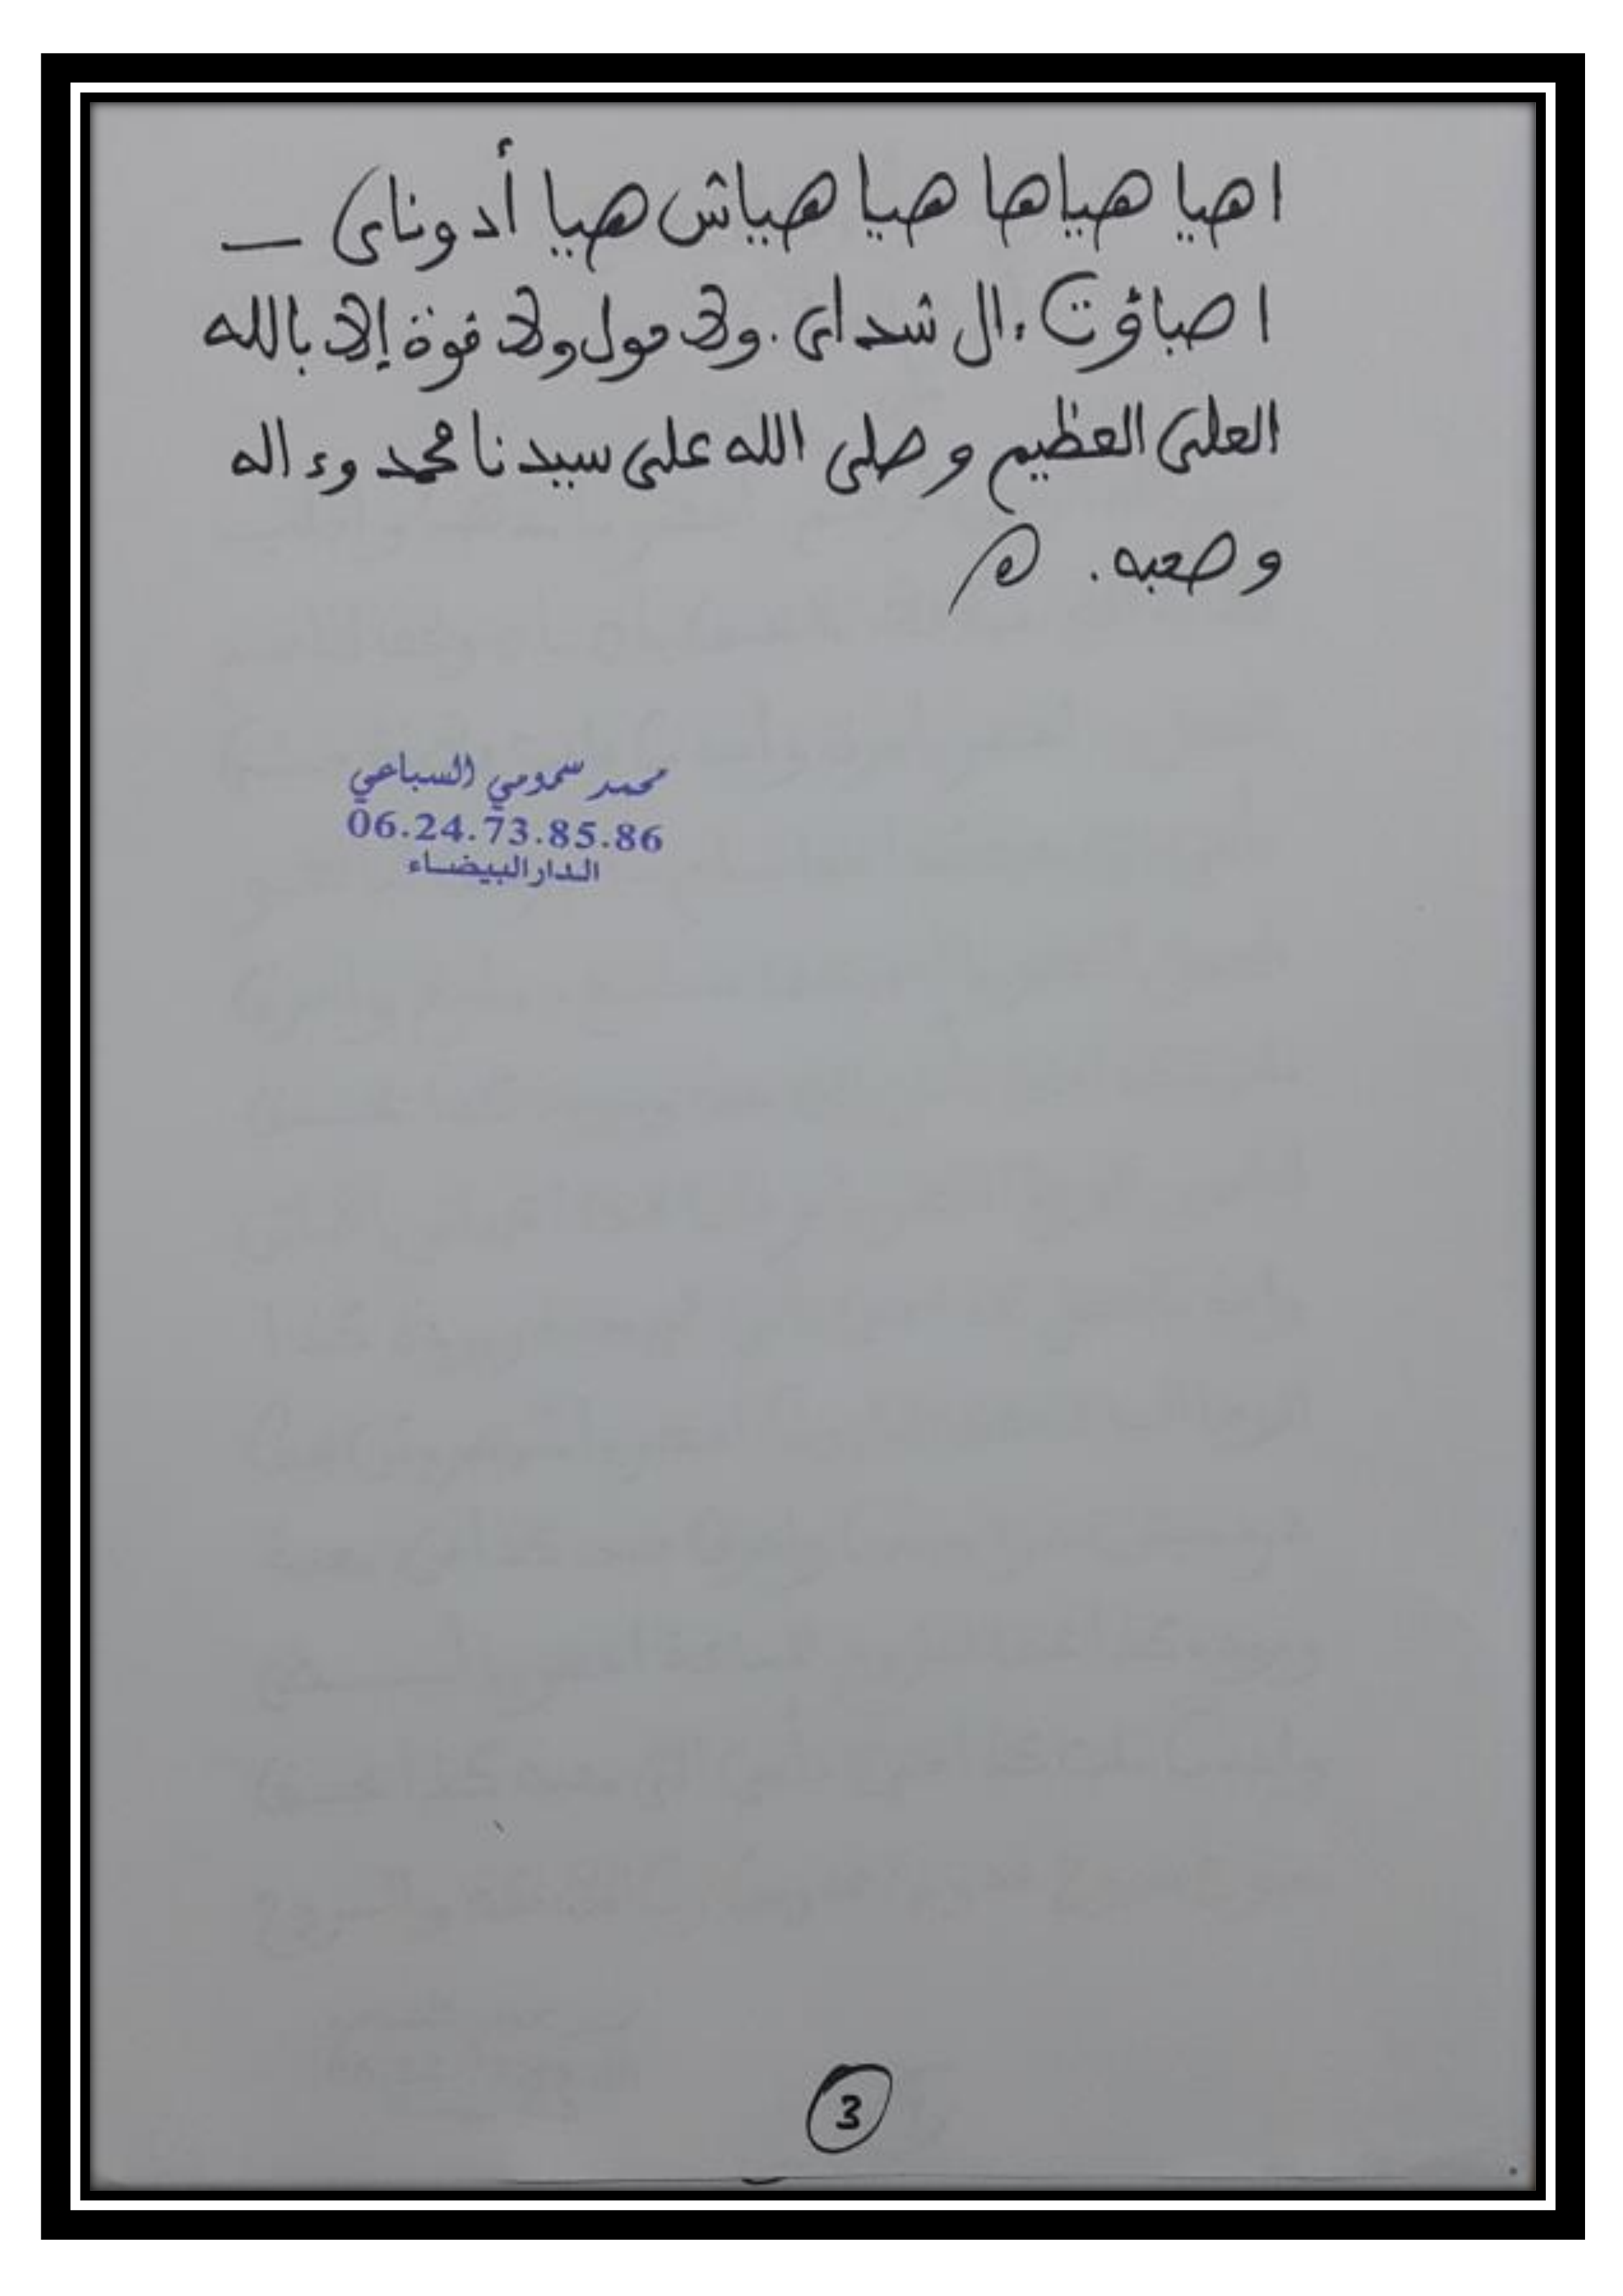 اهيا هياها هيا هياش هيا أدوناى ـ
اصباؤت، ال شداى. ولا حول ولا قوة إلا بالله
العلى العظيم وصلى الله على سيدنا محمد وءاله
وصحبه. ه
محمد سمومي السباعي
06.24.73.85.86
الدار البيضاء
3